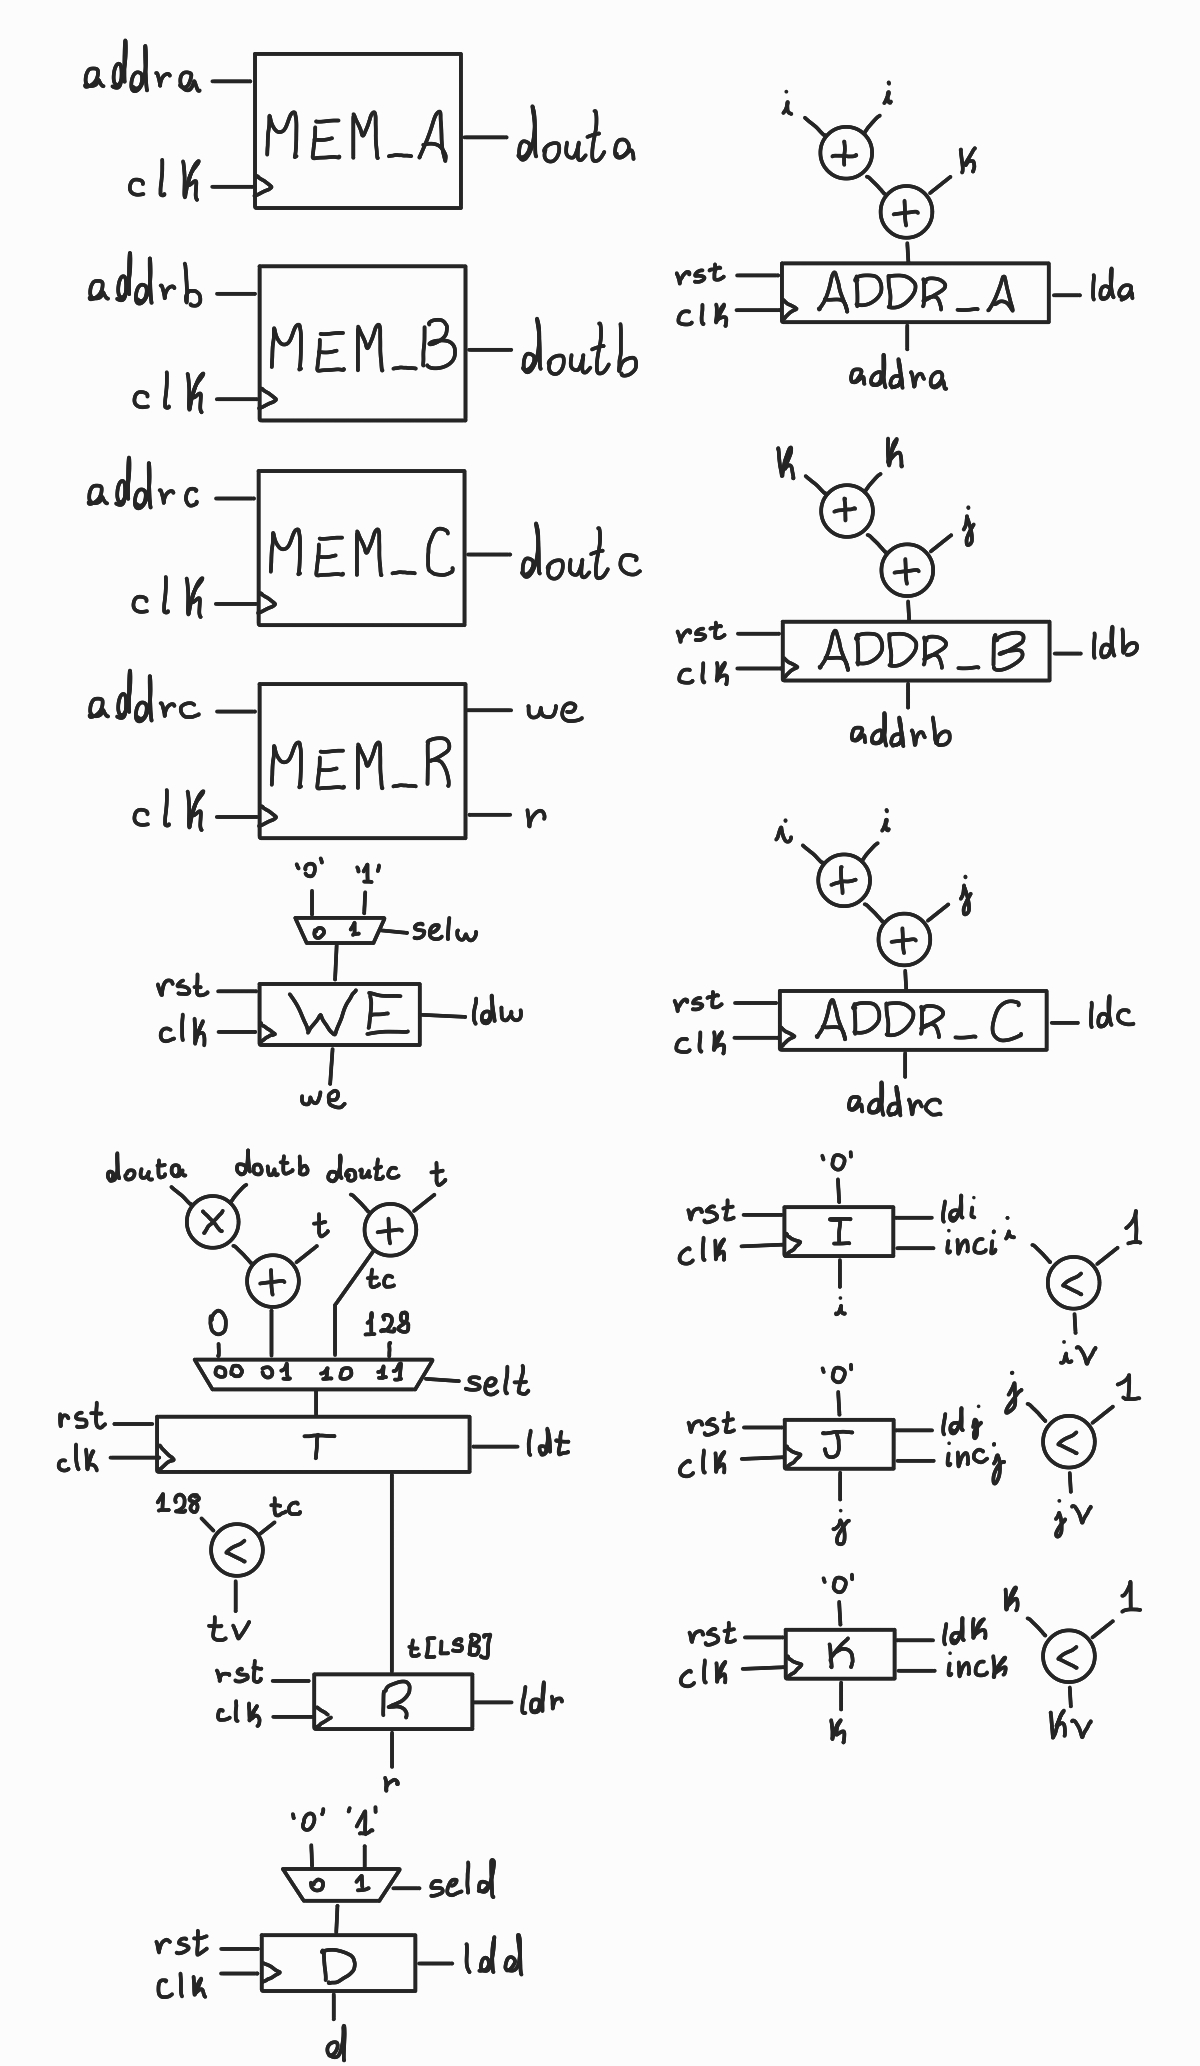 addra
MEM_A
douta
clk
addrb
MEM_B
doutb
clk
addrc
MEM_C
doutc
clk
addrc
we
MEM_R
clk
r
'0' '1'
0 1
selw
rst
WE
ldw
clk
we
douta doutb doutc t
x
+
t
+
tc
0
128
00 01 10 11
selt
rst
T
ldt
clk
128 tc
<
tv
t[LSB]
rst
R
ldr
clk
r
'0' '1'
0 1
seld
rst
D
ldd
clk
d
i i
+
k
+
rst
ADDR_A
lda
clk
addra
k k
+
j
+
rst
ADDR_B
ldb
clk
addrb
i i
+
j
+
rst
ADDR_C
ldc
clk
addrc
'0'
rst
I
ldi
clk
inci
i
i 1
<
iv
'0'
rst
J
ldj
clk
incj
j
j 1
<
jv
'0'
rst
K
ldk
clk
inck
k
k 1
<
kv